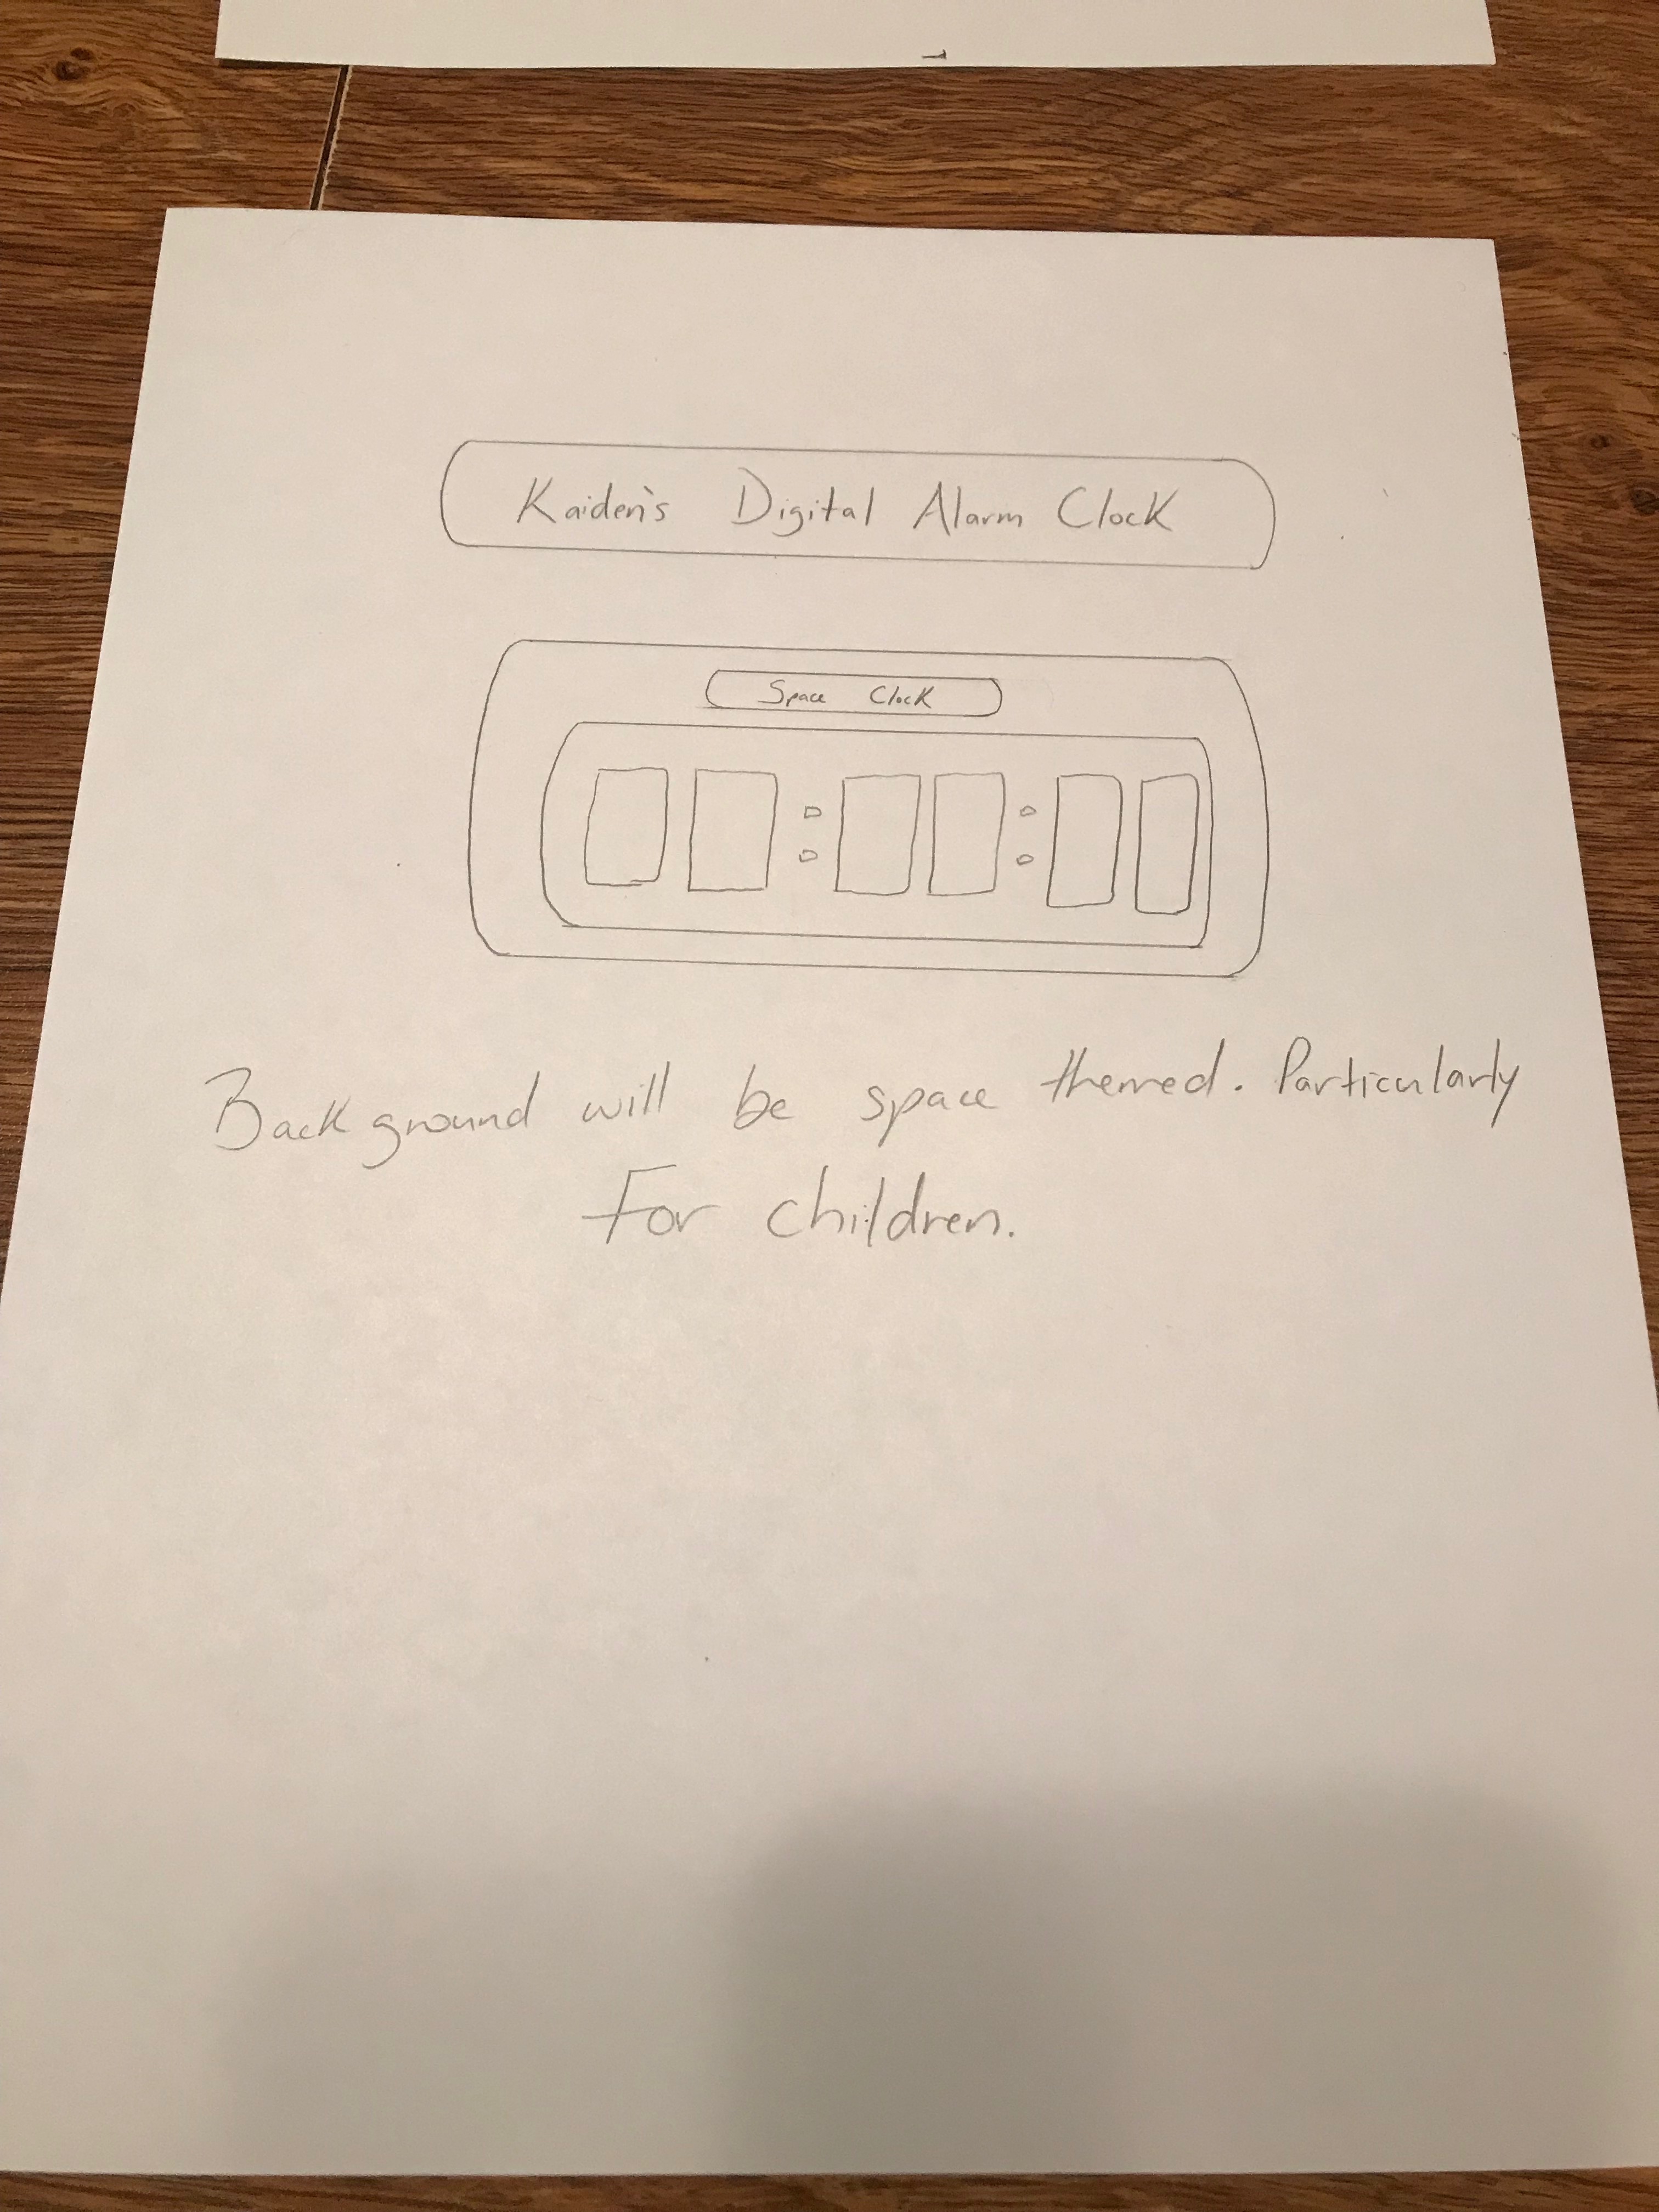 Kaiden's Digital Alarm Clock
Space Clock
Background will be space themed. Particularly
For children.